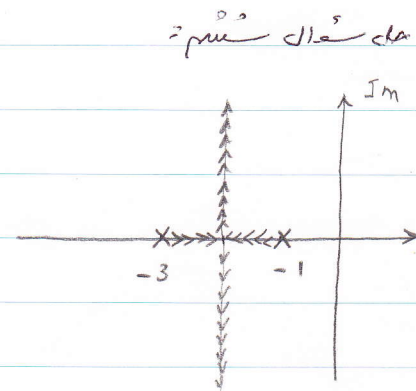 حل سوال ششم:
Im
-3 -1